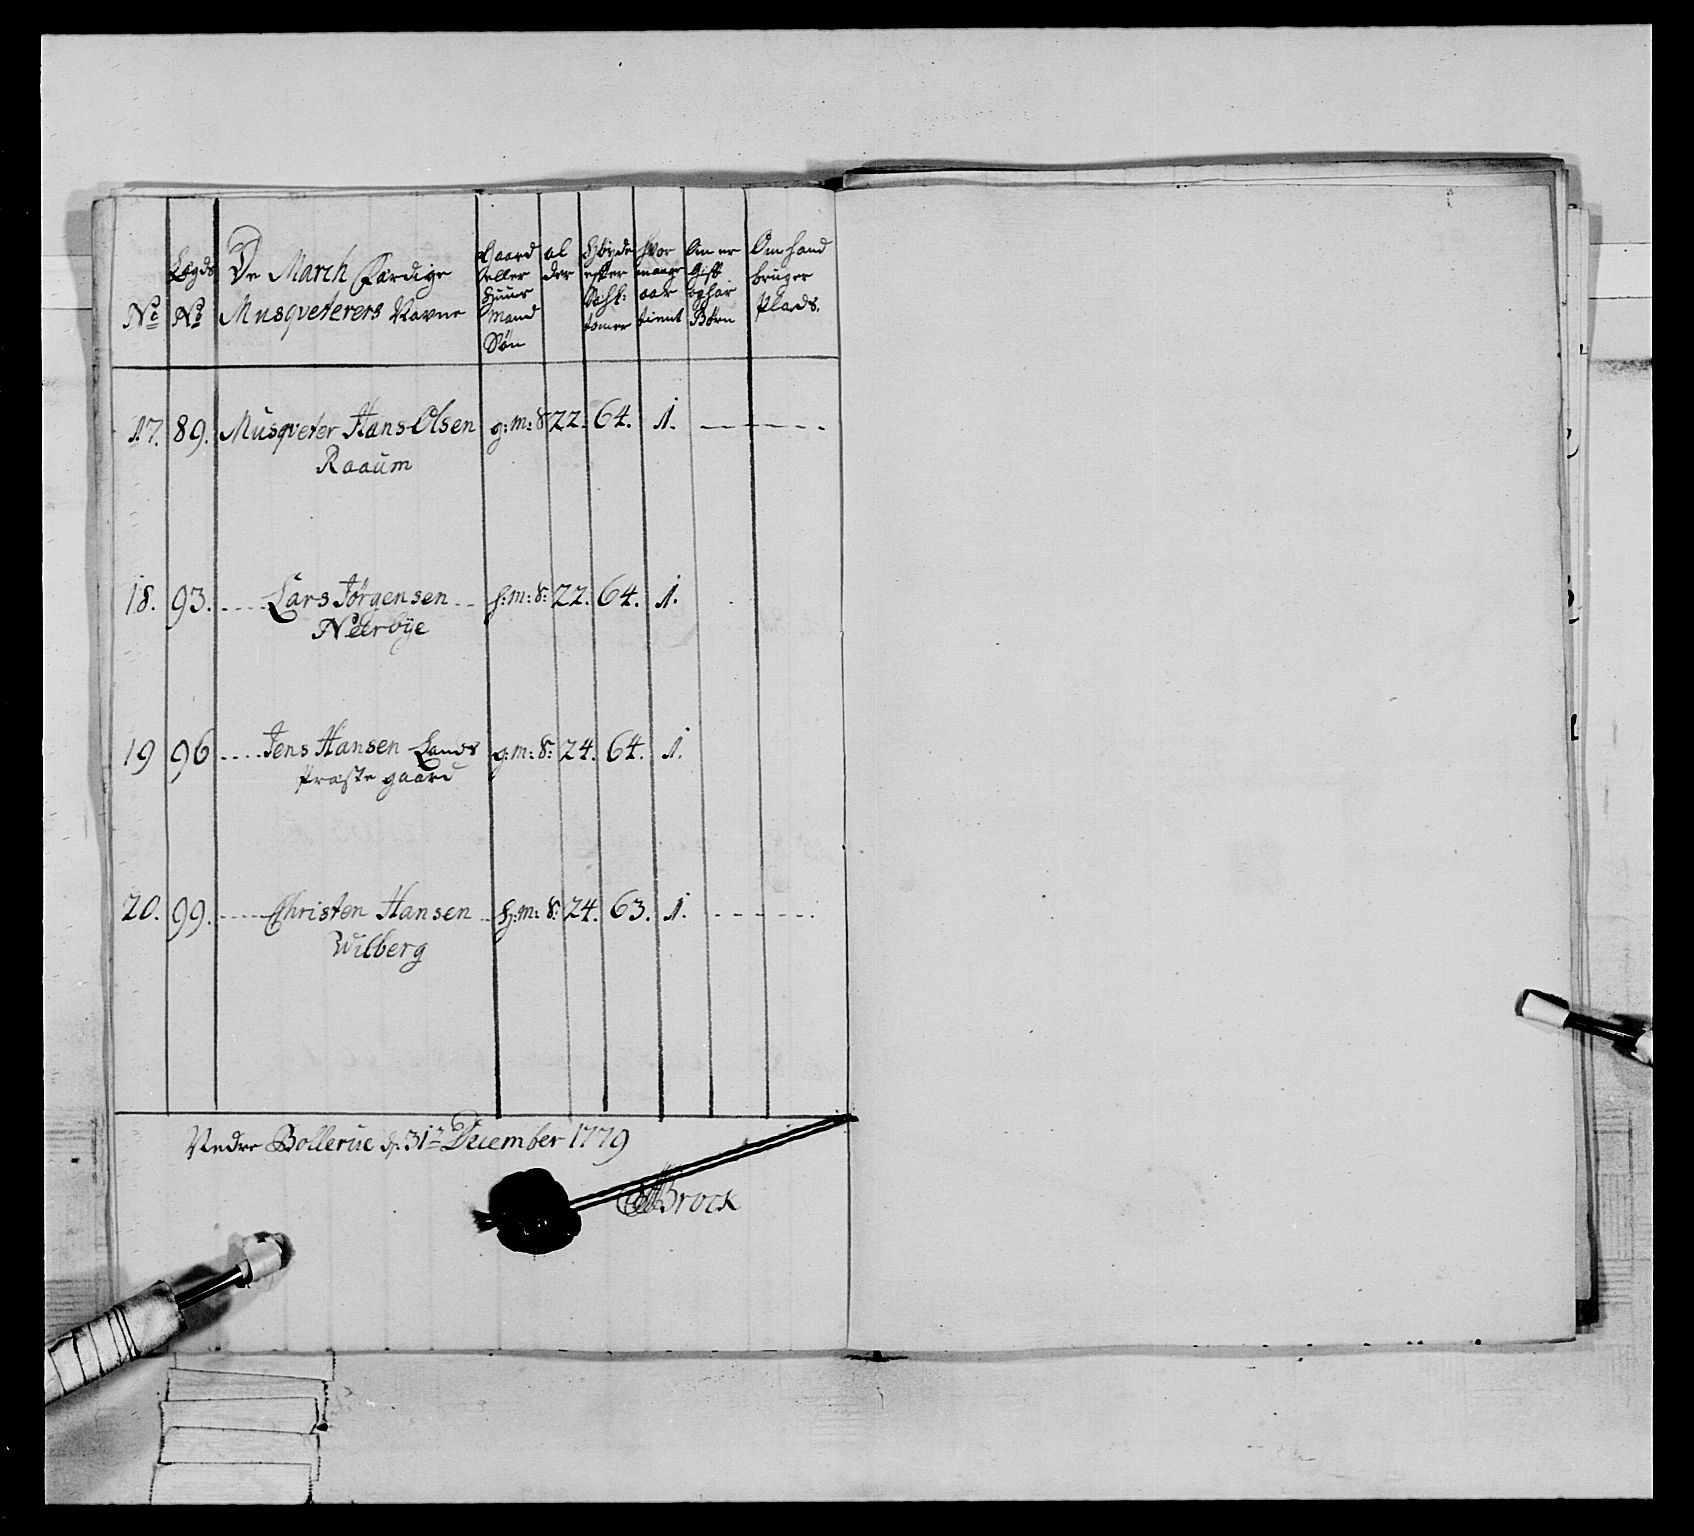 No
Lægds No
De March Færdige
Musqveterers Navne
Gaard eller Huus Mand Søn
al der
Høyde efter Sahl: tomer
Hvor mange aar tient
Om er Gift og har Børn
Om hand bruger Plads.
17. 89. Musqveter Hans Olsen g: m: S: 22. 64. 1. - - - - - -
Raaum
18. 93. .... Lars Jørgensen .. h: m: S: 22. 64. 1.
Neerbye
19 96 .... Jens Hansen Lands g: m: S: 24. 64. 1.
Præste gaard
20. 99. ..... Christen Hansen .. H: m: S: 24. 63. 1. - - - - - -
Wilberg
Nedre Bollerue d. 31te December 1779
Brock